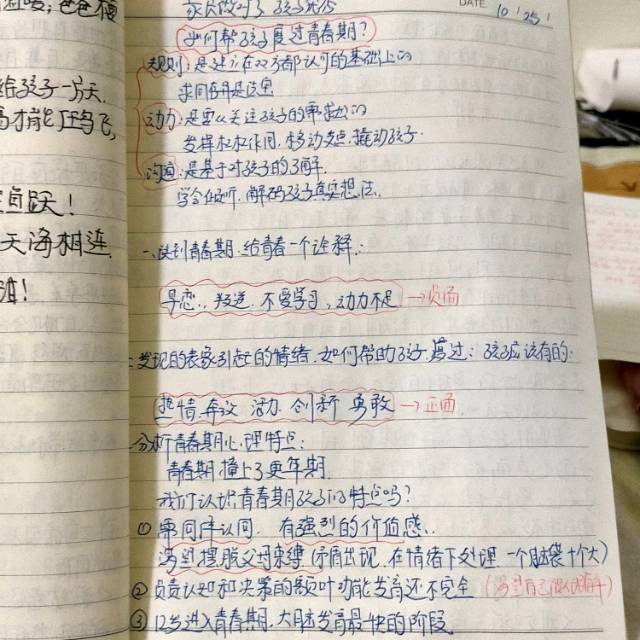 给孩子一方天.
高才能任鸟飞,
鱼跃!
天海相连.
家长做对了, 孩子就洽
DATE 10 / 25 /
如何帮孩子度过青春期?
规则:是建立在双方都认可的基础上的
求同存异是运用
动力:是要么关注孩子的需求的
发挥杠杆作用. 移动支点. 撬动孩子.
沟通:是基于对孩子的了解.
学会倾听. 解码孩子真实想法.
一、谈到青春期. 给青春一个诠释:
早恋.、叛逆. 不爱学习、动力不足 →负面
二发现的表象引起的情绪. 如何帮助孩子度过: 孩子应该有的:
热情. 奔放 活力. 创新 勇敢 →正面
分析青春期心理特点:
青春期撞上了更年期.
我们认识青春期孩子的特点吗?
① 需同伴认同. 有强烈的价值感.
渴望摆脱父母束缚 (矛盾出现. 在情绪下处理 一个脑袋十个大)
② 负责认知和决策的额叶功能发育还不完全
③ 12岁进入青春期. 大脑发育最快的阶段.